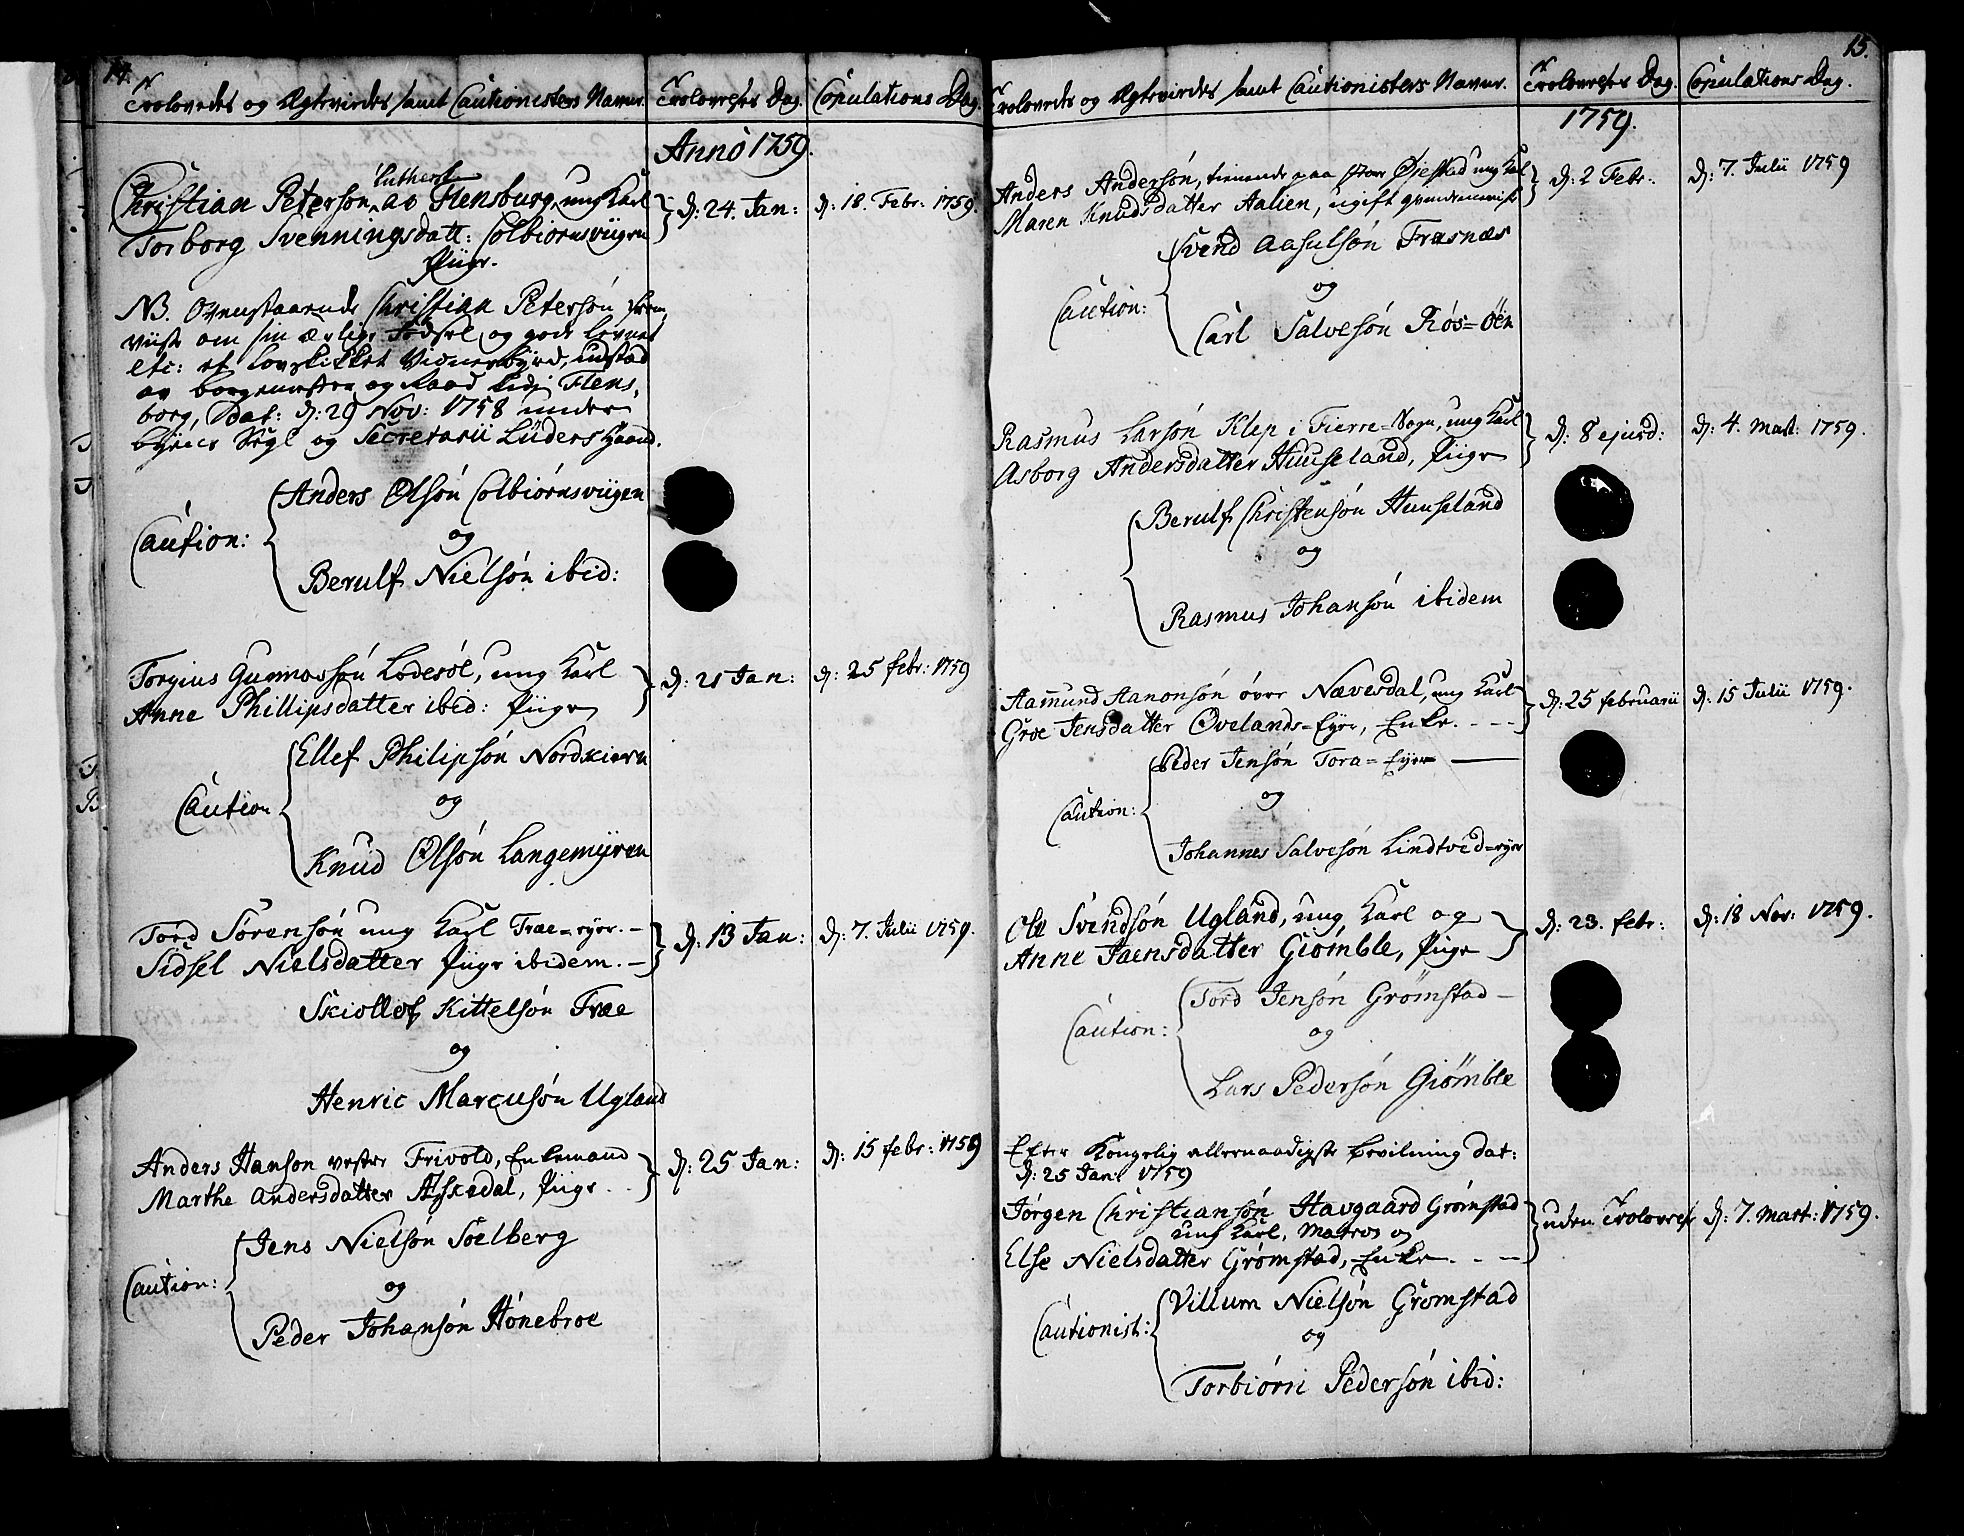 14.
Trolovedes og Ægteviedes samt Cautionisters Navne. Trolovelses Dag. Copulations Dag.
Anno 1759.
Luthersk
Christian Peterson, av Flensburg, ung Karl } d: 24. Jan: d: 18. Febr: 1759.
Torborg Svenningsdatt: Colbiørnsviigen
Piige.
NB. Ovenstaaende Christian Petersøn frem
viiste om sin ærlige Fødsel og gode Levnet
etc: et lovskikket Vidnesbyrd, udstæd
av borgemester og Raad udj Flens,
borg, Dat: d: 29 Nov: 1758 under
byens Segl og Secretarii Lüders Haand.
Anders Olsøn Colbiørnsviigen
Caution: og
Berulf Nielsøn ibid:
Torgius Gunnarsøn Lodesøl, ung Karl } d: 21 Jan: d: 25 febr: 1759
Anne Phillipsdatter ibid: Piige
Ellef Philipsøn Nordkiern
Caution og
Knud Olsøn Langemyren
Tord Sørensøn ung Karl Træe-eyer. – } d: 13 Jan: d: 7. Julii 1759.
Sidsel Nielsdatter Piige ibidem. –
Skiollof Kittelsøn Træe
og
Henric Marcusøn Ugland
Anders Hanson vestre Frivold, Enkemand } d: 25 Jan: d: 15 febr: 1759
Marthe Andersdatter Æskedal, Piige.
Jens Nielsøn Soelberg
Caution: og
Peder Johansøn Hønebroe
15.
Trolovedes og Ægteviedes samt Cautionisters Navne. Trolovelses Dag. Copulations Dag.
1759.
Anders Andersøn, tienende paa store Øjestad ung Karl } d: 2 Febr: d: 7. Julii 1759
Maren Knudsdatter Aalien, ugift
Svend Aasulsøn Fræsnæs
Caution: og
Carl Salvesøn Røs=öen
Rasmus Larsøn Klep i Fierre-Sogn, ung Karl } d: 8 ejusd: d: 4. Mart: 1759.
Asborg Andersdatter Huuseland, Piige
Berulf Christensøn Huuseland
og
Rasmus Johansøn ibidem
Aamund Aanonsøn øvre Nævesdal, ung Karl } d: 25 februarii d: 15 Julii 1759.
Groe Jensdatter Øvelands-Eyre, Enke. - - -
Peder Jensøn Tora-Eyere
Caution: og
Johannes Salvesøn Lindtved-eyer
Ole Svendsøn Ugland, ung Karl og } d: 23. febr: d: 18 Nov: 1759.
Anne Jaensdatter Giømble, Piige
Tord Jensøn Grømstad –
Caution: og
Lars Pedersøn Giömble
Efter Kongelig allernaadigste bevilning dat:
d: 25 Jan: 1759
Jørgen Christiansøn Havgaard Grømstad } uden Trolovelse d: 7. Mart: 1759.
ung Karl, Matros og
Else Nielsdatter Grømstad, Enke. - -
Villum Nielsøn Grømstad
Cautionist: og
Torbiørn Pedersøn ibid: